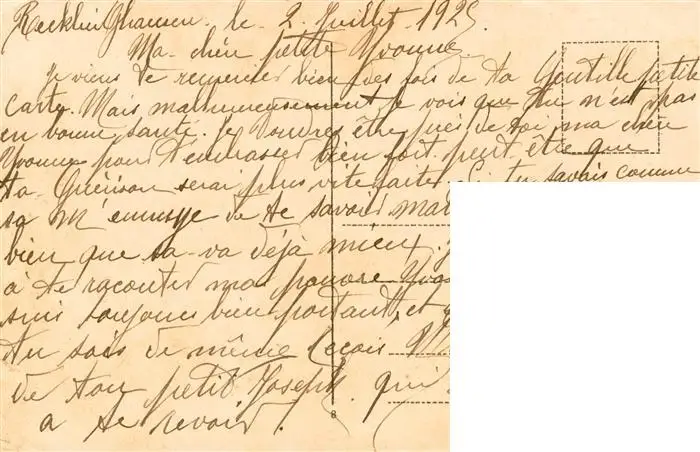 Recklinghausen. le. 2. Juillet. 1925.
Ma chèr petite Yvonne.
Je viens te remercier bien des fois de ta Gentille petite
Carte. Mais malheureusement Je vois que tu n'est pas
en bonne santé. Je voudrez être près de toi, ma chèr
Yvonne pour t'embrasser bien fort. peut être que
ta Guérison serai plus vite faite. Si tu savais comme
sa m'ennuye de te savoir
bien que sa-va déjà mieux.
à te raconter mas pauvre
suis toujours bien portant, et
tu sois de même Reçois
de ton petit Joseph. qui
a te revoir.
8